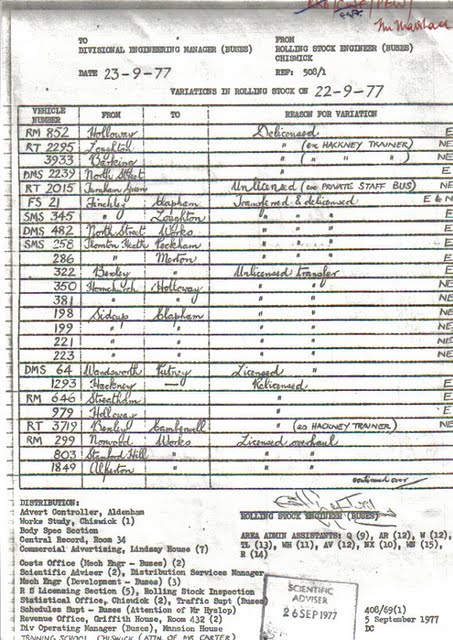 Mr Marshall
TO FROM
DIVISIONAL ENGINEERING MANAGER (BUSES) ROLLING STOCK ENGINEER (BUSES)
CHISWICK
DATE 23-9-77 REF: 508/1
VARIATIONS IN ROLLING STOCK ON 22-9-77
VEHICLE NUMBER FROM TO REASON FOR VARIATION
RM 852 Holloway Delicensed E
RT 2295 Loughton " (ex HACKNEY TRAINER) NE
3933 Barking " ( " " " ) NE
DMS 2239 North Street " E
RT 2015 Turnham Green Unlicensed (ex PRIVATE STAFF BUS) NE
FS 21 Finchley Clapham Transferred & delicensed E & N
SMS 345 " Loughton " " "
DMS 482 North Street Works " " "
SMS 258 Thornton Heath Peckham " " "
286 " Merton " "
322 Bexley " Unlicensed transfer E
350 Hornchurch Holloway " " NE
381 " " " " NE
198 Sidcup Clapham " " NE
199 " " " " NE
221 " " " " NE
223 " " " " NE
DMS 64 Wandsworth Putney Licensed " E
1293 Hackney — Relicensed E
RM 646 Streatham " E
979 Holloway " E
RT 3719 Bexley Camberwell " (as HACKNEY TRAINER) NE
RM 299 Norwood Works Licensed overhaul E
803 Stamford Hill " " " E
1849 Alperton " " " E
continued over
DISTRIBUTION:
Advert Controller, Aldenham
Works Study, Chiswick (1)
Body Spec Section
Central Record, Room 34
Commercial Advertizing, Lindsay House (7)
ROLLING STOCK ENGINEER (BUSES)
AREA ADMIN ASSISTANTS: Q (9), AR (12), W (12),
TL (13), WH (11), AV (12), NX (10), WN (15),
R (14)
Costs Office (Mech Engr - Buses) (2)
Scientific Adviser (2), Distribution Services Manager
Mech Engr (Development - Buses) (3)
R S Licensing Section (5), Rolling Stock Inspection
Statistical Office, Chiswick (2), Traffic Supt (Buses)
Schedules Supt - Buses (Attention of Mr Hyslop)
Revenue Office, Griffith House, Room 432 (2)
Div Operating Manager (Buses), Mansion House
TRAINING SCHOOL, CHISWICK (ATTN. OF MR CARTER)
SCIENTIFIC
ADVISER
26 SEP 1977
408/69(1)
5 September 1977
DC